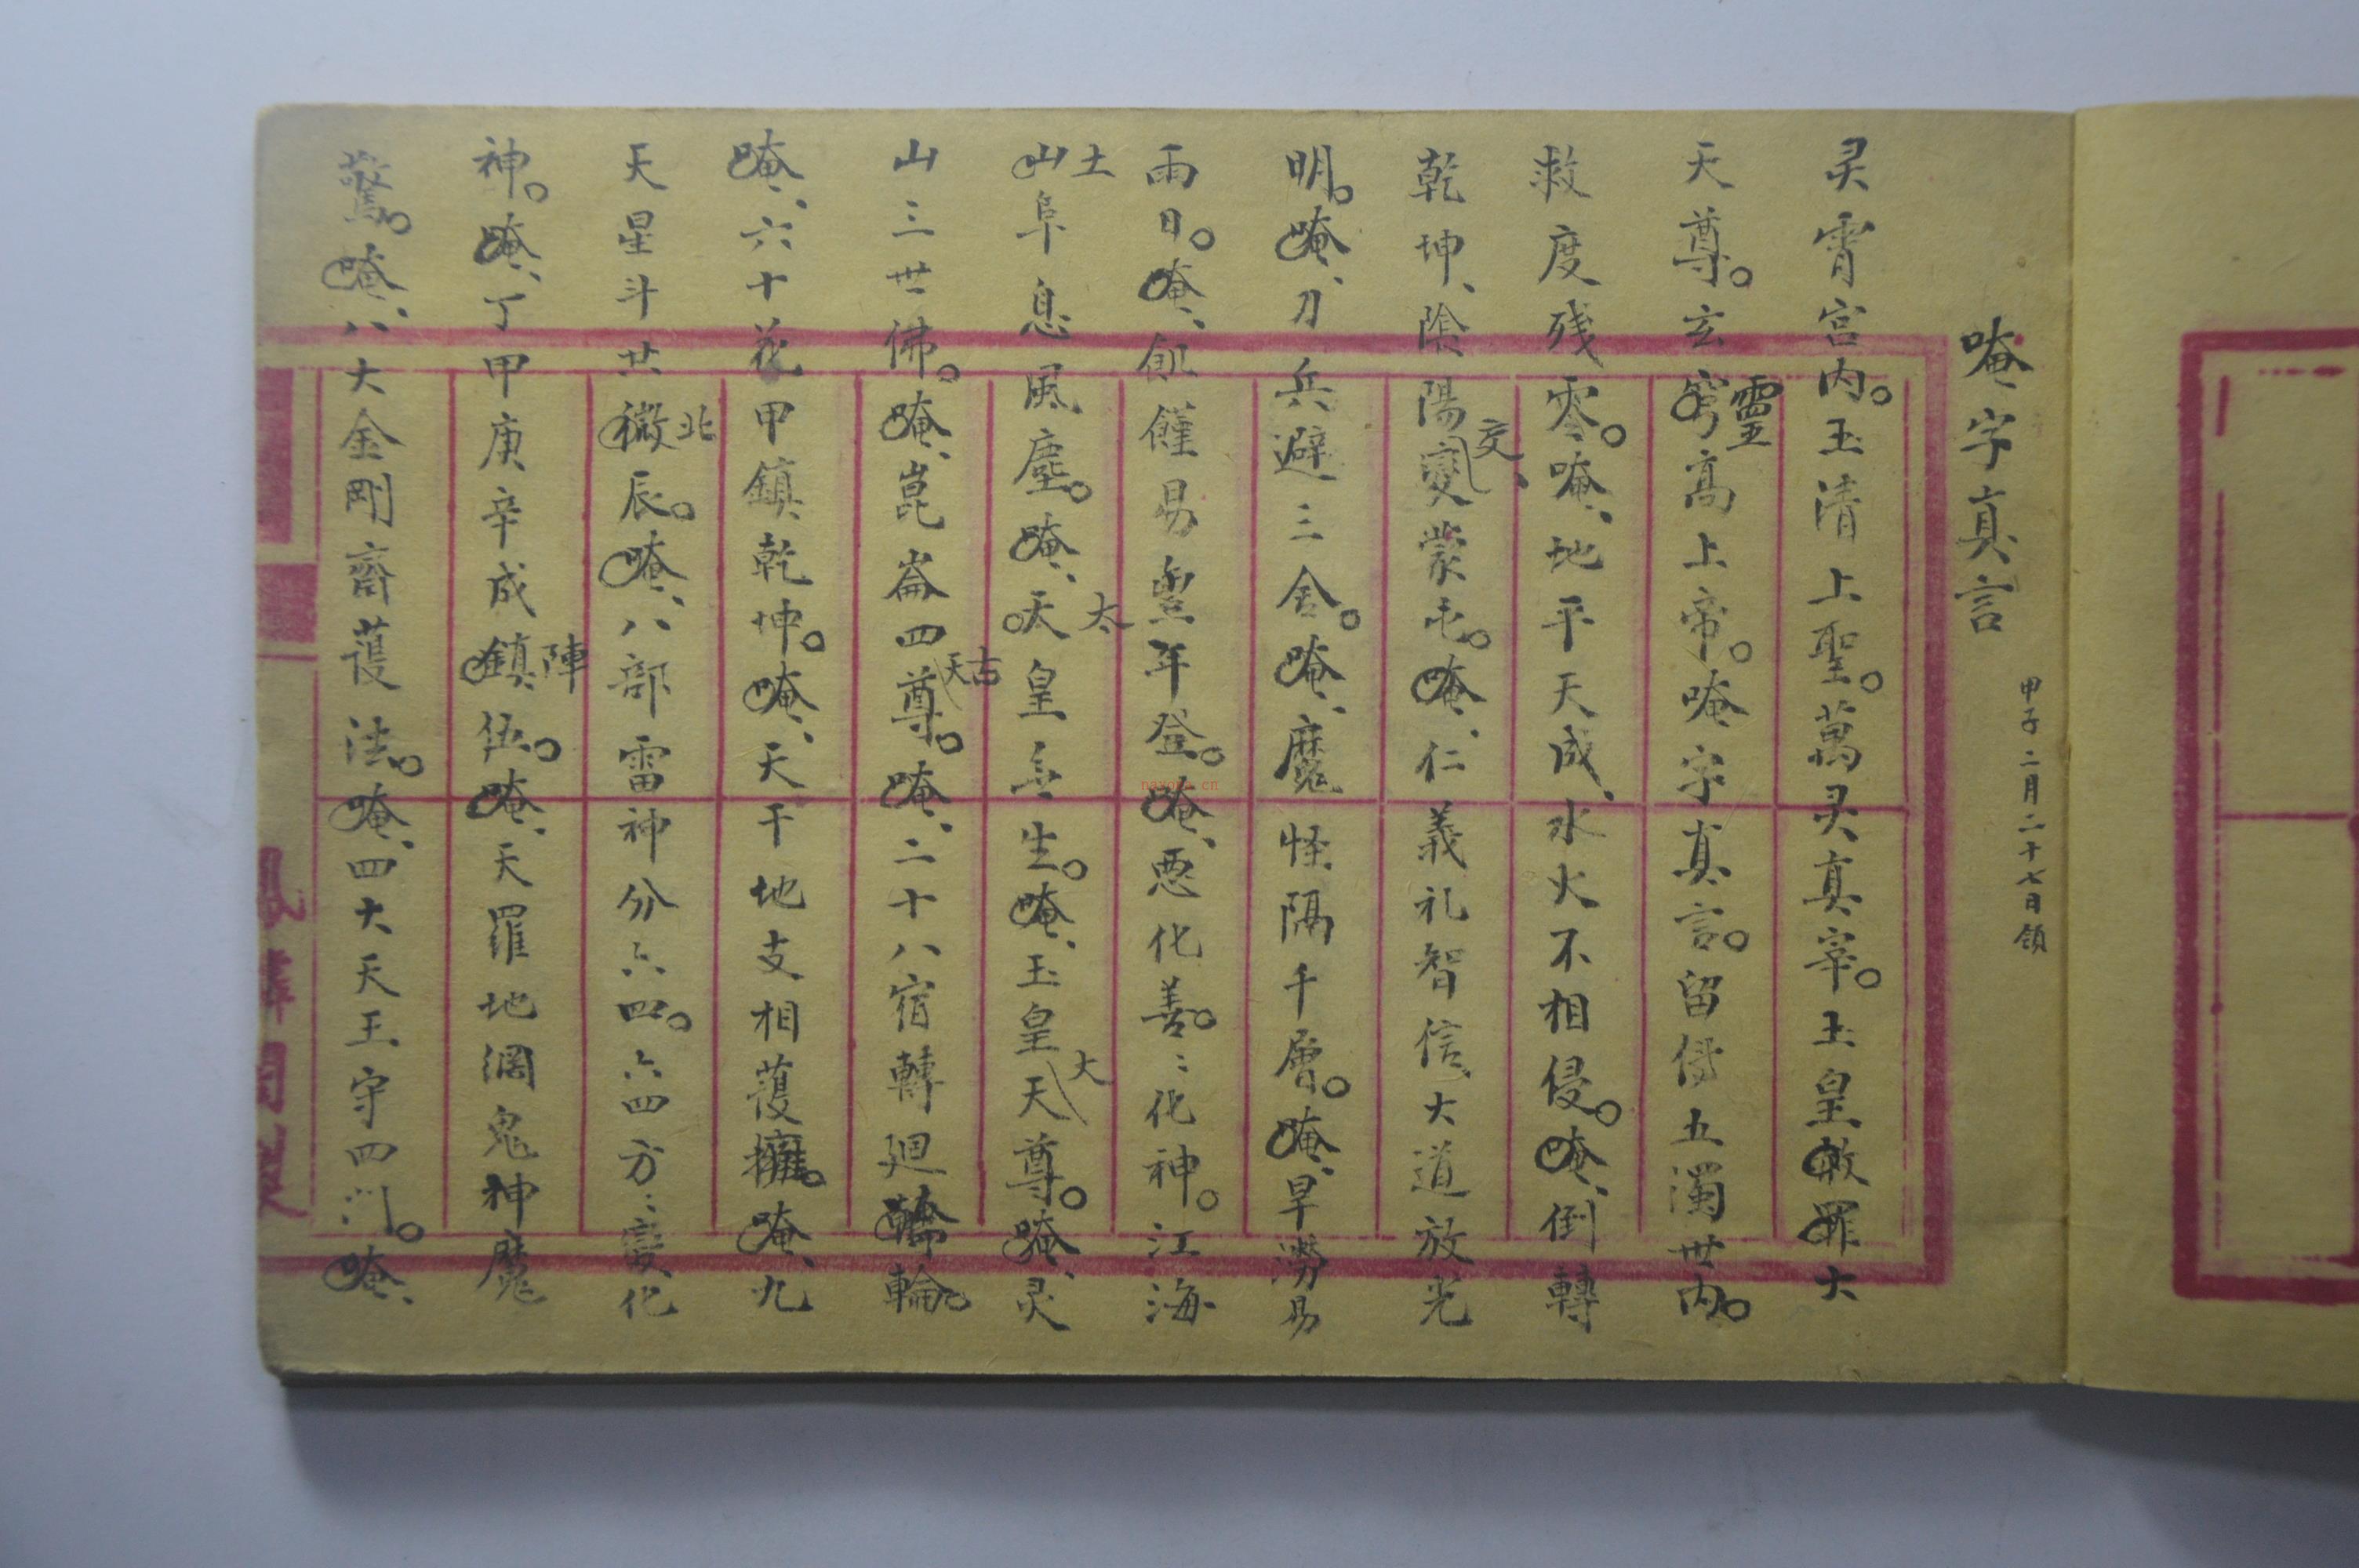 唵字真言
甲子二月二十七日領
灵霄宫内。玉清上聖。萬灵真宰。玉皇赦罪大
天尊。玄穹高上帝。唵字真言。留傳五濁世内。
靈
救度残零。唵、地平天成、水火不相侵。唵、倒轉
乾坤、陰陽變蒙屯。唵、仁義礼智信、大道放光
交、
明。唵、刀兵避三舍。唵、魔怪隔千層。唵、旱澇易
雨日。唵、飢饉易豊年登。唵、悪化善。〻化神。江海
山阜息風塵。唵、天皇无生。唵、玉皇天尊。唵、灵
土
太
大
山三世佛。唵、崑崙四尊。唵、二十八宿轉廻輪。
天吉
唵、六十花甲鎮乾坤。唵、天干地支相護擁。唵、九
天星斗共微辰。唵、八部雷神分六四。六四方〻變化
北
神。唵、丁甲庚辛成鎮伍。唵、天羅地網鬼神魔
陣
驚。唵、八大金剛齋護法。唵、四大天王守四门。唵、
nayona.cn